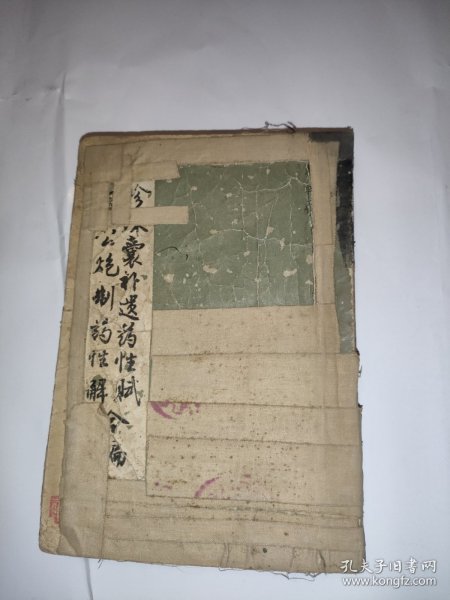 珍
囊补遗药性赋
公炮制药性解合编
孔夫子旧书网
www.kongfz.com